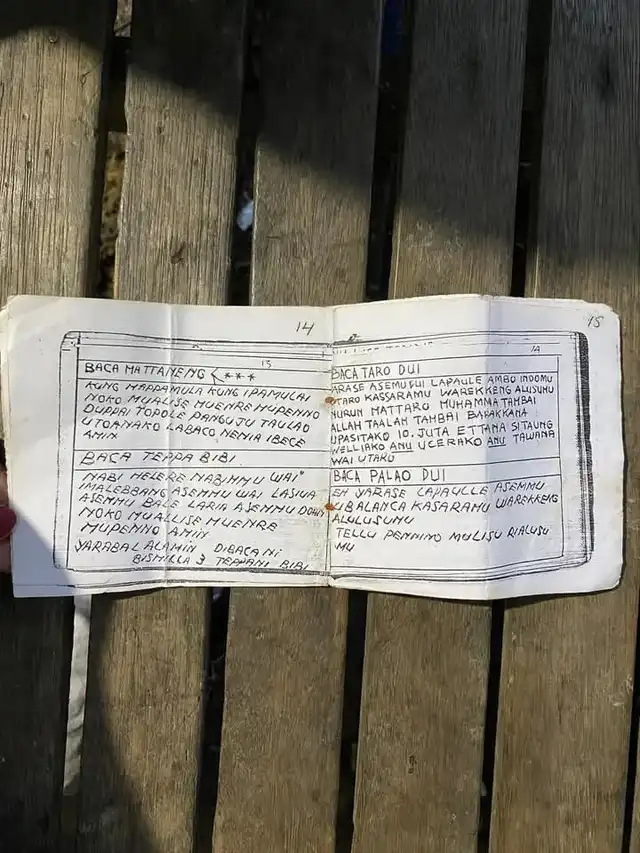 14
13
BACA MATTANENG < ***
KUNG MAPPAMULA KUNG IPAMULAI
NOKO MUALISE MUENRE MUPENNO
DUPPAI TOPOLE PANGUJU TAULAO
UTOANAKO LABACO, NENIA IBECE
AMIN
BACA TEPPA BIBI
NABI HELERE NABIMMU WAI"
MALEBBANG ASEMMU WAI LASIUA
ASEMMU BALE LARIA ASEMMU DOWN
NOKO MUALLISE MUENRE
MUPENNO AMIN
YARABAL ALAMIN DIBACANI
BISMILLA 3 TEPPANI BIBI
15
14
BACA TARO DUI
ARASE ASEMU DUI LAPAULE AMBO INDOMU
TARO KASSARAMU WAREKKENG ALUSUMU
NURUN MATTARO MUHAMMA TAMBAI
ALLAH TAALAH TAMBAI BAPAKKANA
UPASITAKO 10. JUTA ETTANA SITAUNG
WELLIAKO ANU UCERAKO ANU TAWANA
WAI UTAKO
BACA PALAO DUI
EH YARASE LAPAULLE ASEMMU
UBALANCA KASARAMU WAREKKENG
ALULUSUMU
TELLU PENNINO MULISU RIALUSU
MU